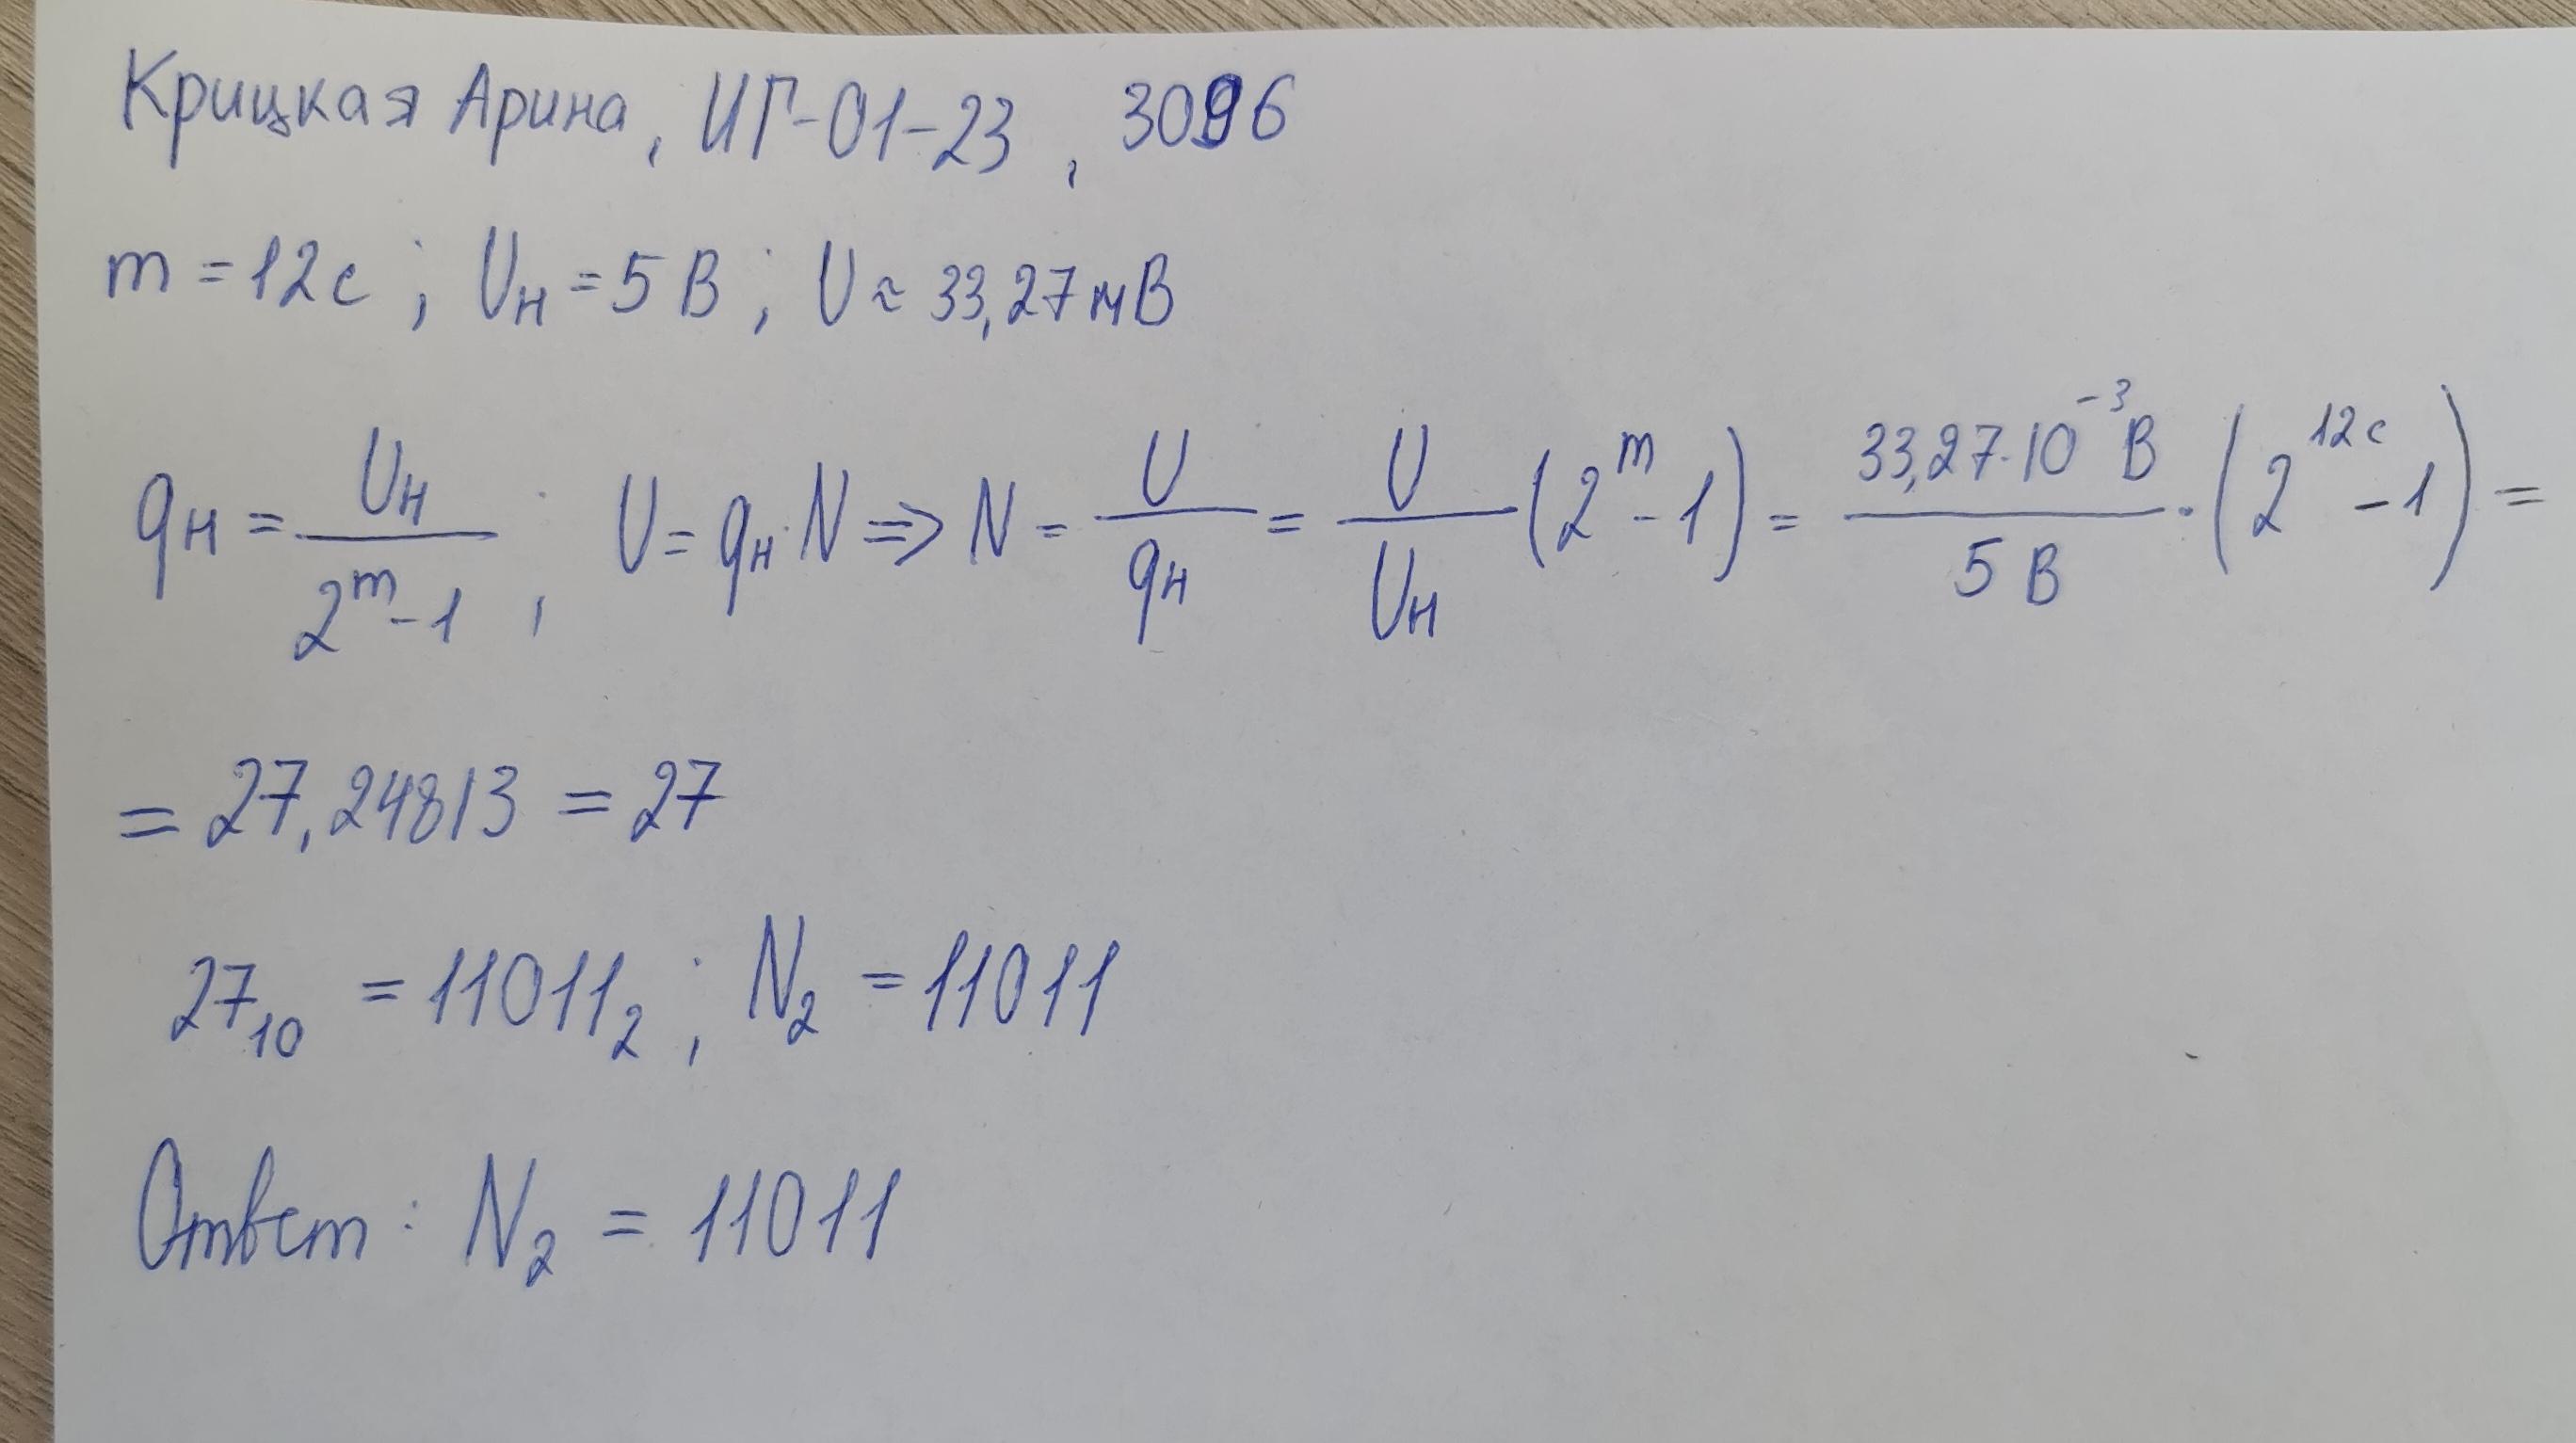 Крицкая Арина, ИГ-01-23, 3096
m = 12 с ; Uн = 5 В ; U ≈ 33,27 мВ
qн = Uн / (2^m - 1) ; U = qн · N => N = U / qн = U / Uн (2^m - 1) = 33,27·10^-3 В / 5 В · (2^12с - 1) =
= 27,24813 = 27
27₁₀ = 11011₂ ; N₂ = 11011
Ответ : N₂ = 11011